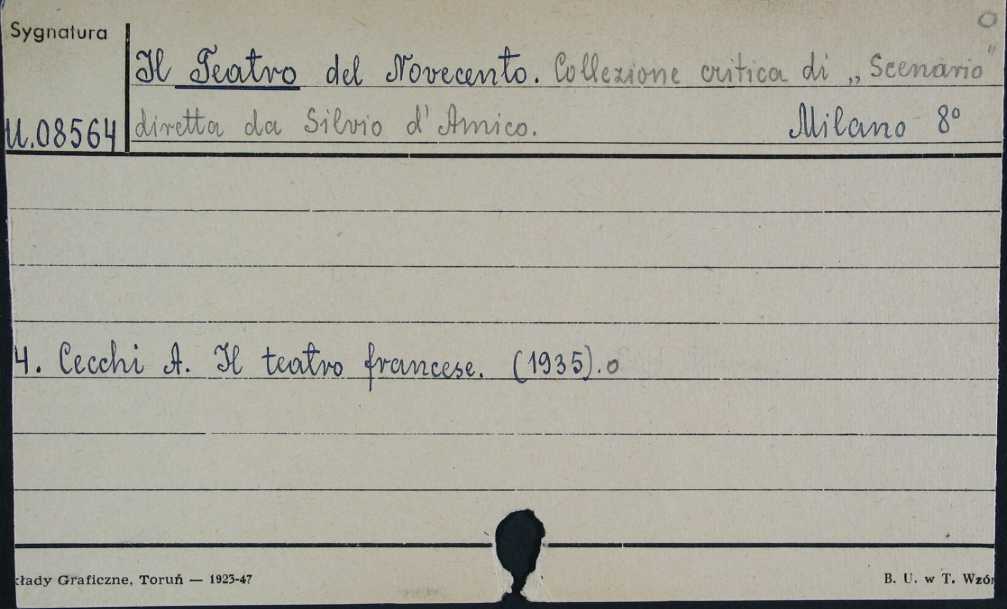 Sygnatura
Il Teatro del Novecento. Collezione critica di „Scenario"
U.08564 diretta da Silvio d'Amico. Milano 8°
4. Cecchi A. Il teatro francese. (1935).o
kłady Graficzne, Toruń — 1923-47 B. U. w T. Wzór